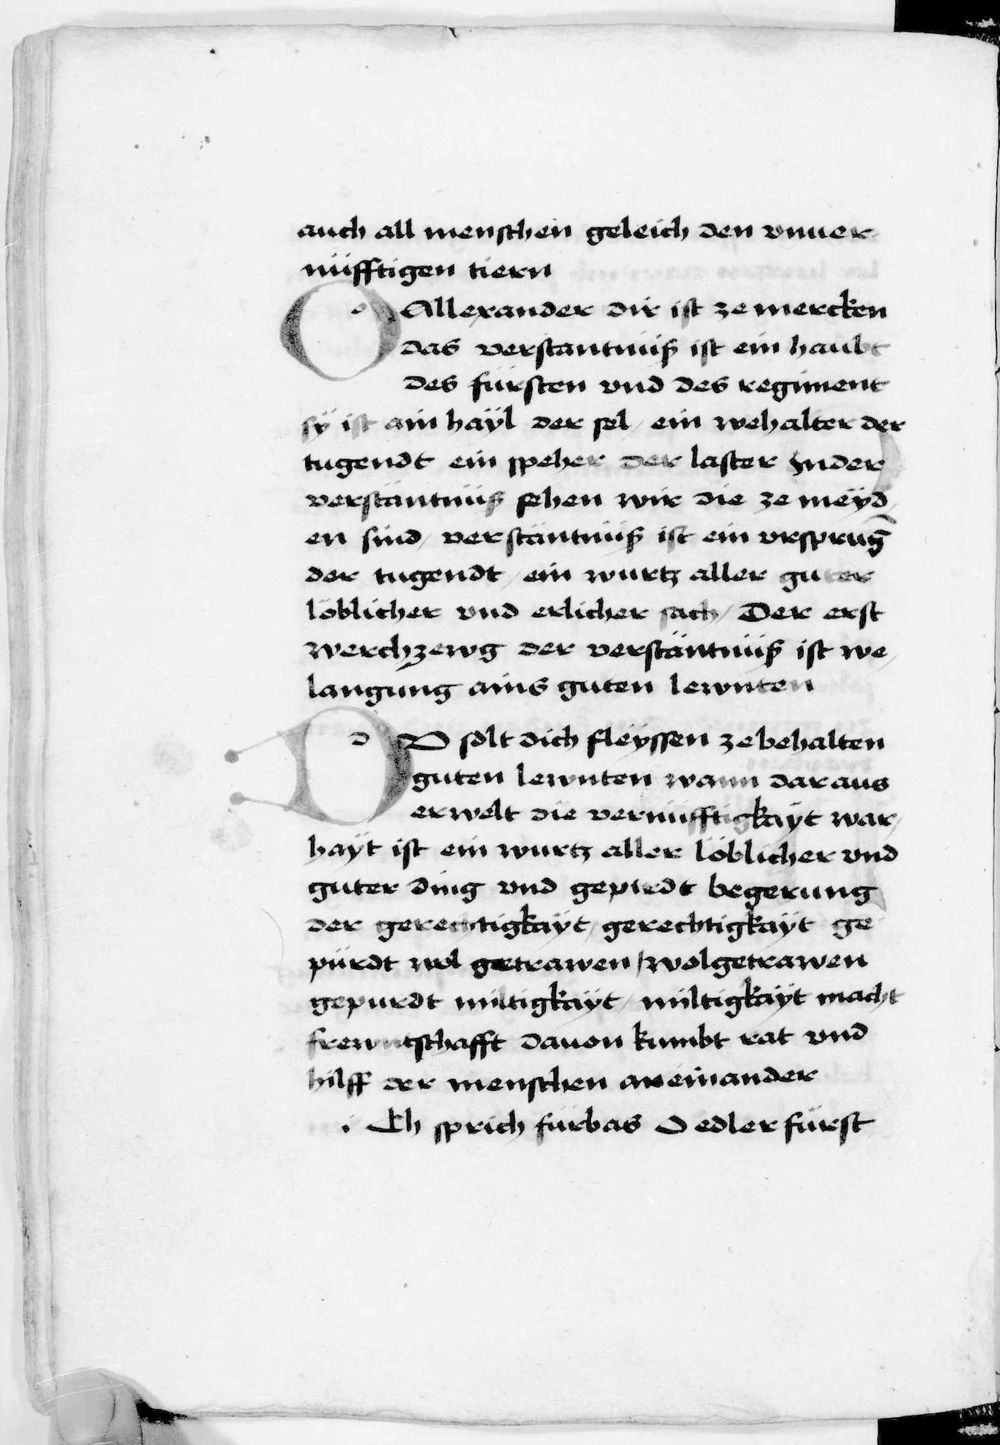 auch all menschen geleich den vnuer
nüfftigen tiern
O Allexander dir ist ze mercken
das verstantnüß ist ein haubt
des fürsten vnd des regiment
sÿ ist ain haÿl der sel / ein wehalter der
tugendt ein speher der laster Jnder
verstäntnüß sehen wir die ze meÿd
en sind / verstäntnüß ist ein vrsprūg
der tugendt / ein wurtz aller guter
löblicher vnd erlicher sach / Der erst
werchzewg der verständtnüß ist we /
langung ains guten lewnten
DV solt dich fleÿssen ze behalten
guten lewnten wann dar aus
erwelt die vernüfftigkaÿt war /
haÿt ist ein wurtz aller löblicher vnd
guter ding vnd gepurdt begerung
der gerechtigkaÿt / gerechtigkaÿt ge
pürdt wol getrawen / wolgetrawen
gepurdt miltigkaÿt / miltigkaÿt macht
frewntschafft dauon kumbt rat vnd
hilff der menschen an einander
i Ch sprich fürbas O edler fürst